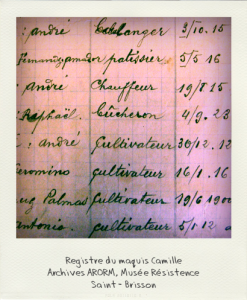 : andré Boulanger 3/10.15
patissier 5/5 16
andré Chauffeur 19/8 15
Raphaël. bûcheron 4/9.23
: andré Cultivateur 30/12.12
eromino cultivateur 16/1.16
Palmad Cultivateur 19/6 190
antonio. cultivateur 5/1 12
Registre du maquis Camille
Archives ARORM, Musée Résistence
Saint-Brisson